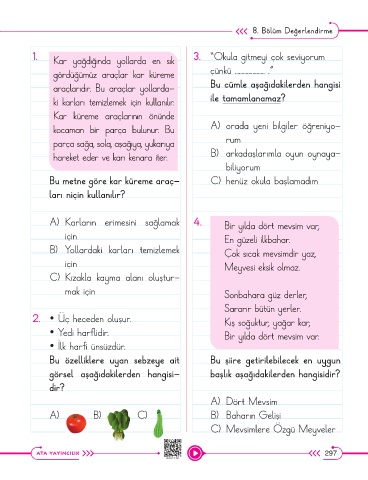 8. Bölüm Değerlendirme
1. Kar yağdığında yollarda en sık
gördüğümüz araçlar kar küreme
araçlarıdır. Bu araçlar yollarda-
ki karları temizlemek için kullanılır.
Kar küreme araçlarının önünde
kocaman bir parça bulunur. Bu
parça sağa, sola, aşağıya, yukarıya
hareket eder ve karı kenara iter.
Bu metne göre kar küreme araç-
ları niçin kullanılır?
A) Karların erimesini sağlamak
için
B) Yollardaki karları temizlemek
için
C) Kızakla kayma alanı oluştur-
mak için
2. • Üç heceden oluşur.
• Yedi harflidir.
• İlk harfi ünsüzdür.
Bu özelliklere uyan sebzeye ait
görsel aşağıdakilerden hangisi-
dir?
A) B) C)
3. "Okula gitmeyi çok seviyorum
çünkü ................ ."
Bu cümle aşağıdakilerden hangisi
ile tamamlanamaz?
A) orada yeni bilgiler öğreniyo-
rum
B) arkadaşlarımla oyun oynaya-
biliyorum
C) henüz okula başlamadım
4. Bir yılda dört mevsim var,
En güzeli ilkbahar.
Çok sıcak mevsimdir yaz,
Meyvesi eksik olmaz.
Sonbahara güz derler,
Sararır bütün yerler.
Kış soğuktur, yağar kar,
Bir yılda dört mevsim var.
Bu şiire getirilebilecek en uygun
başlık aşağıdakilerden hangisidir?
A) Dört Mevsim
B) Baharın Gelişi
C) Mevsimlere Özgü Meyveler
ATA YAYINCILIK
297